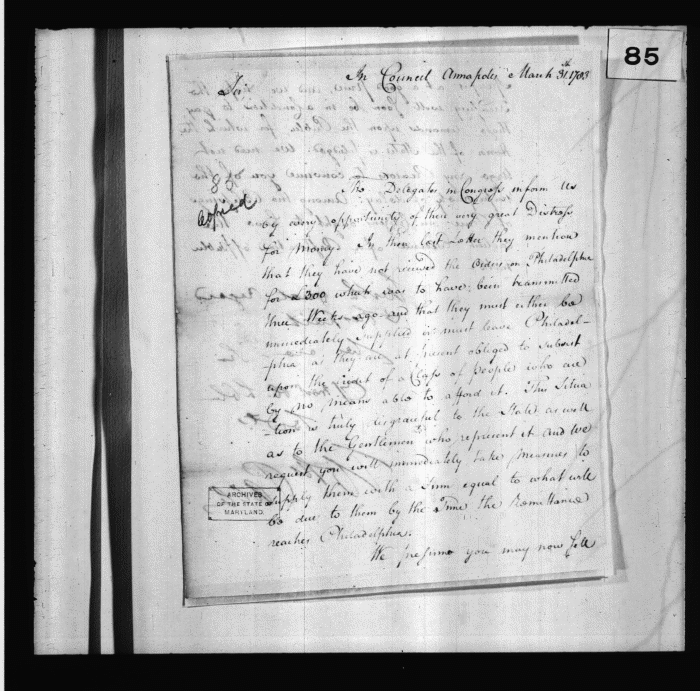 85
In Council Annapolis March 31st 1783
Sir
85
Copied
The Delegates in Congress inform Us
by every opportunity of their very great Distress
for Money. In their last Letter they mention
that they have not received the Orders on Philadelphia
for £300 which was to have been transmitted
three Weeks ago and that they must either be
immediately supplied or must leave Philadel-
phia as they are at present obliged to subsist
upon the credit of a Class of People who are
by no means able to afford it. This Situa
-tion is truly disgraceful to the State as well
as to the Gentlemen who represent it and We
request you will immediately take measures to
supply them with a Sum equal to what will
be due to them by the Time the Remittance
reaches Philadelphia.
We presume you may now sell
ARCHIVES
OF THE STATE OF
MARYLAND.